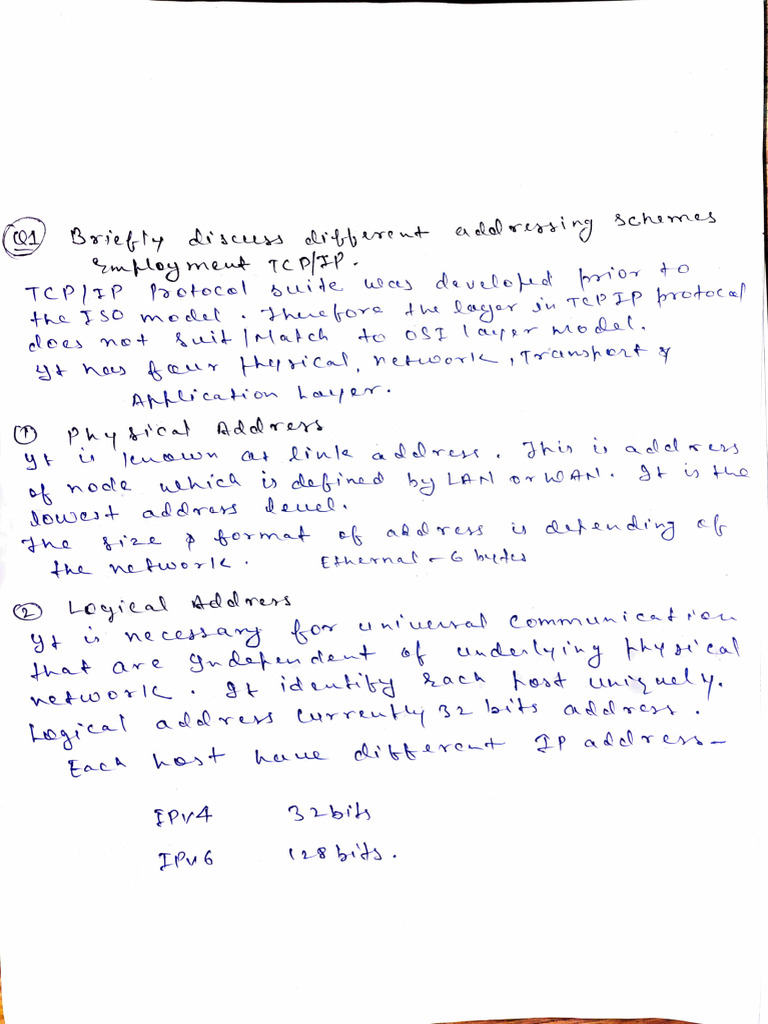 Q1 Briefly discuss different addressing schemes
Employment TCP/IP.
TCP/IP Protocol suite was developed prior to
the ISO model. Therefore the layer in TCP IP protocal
does not suit/Match to OSI layer model.
It has four Physical, network, Transport &
Application Layer.
① Physical Address
It is known as link address. This is address
of node which is defined by LAN or WAN. It is the
lowest address level.
The size & format of address is depending of
the network. Ethernal - 6 bytes
② Logical Address
It is necessary for universal communication
that are Independent of underlying physical
network. It identify Each host uniquely.
Logical address currently 32 bits address.
Each host have different IP address-
IPv4 32 bits
IPv6 128 bits.